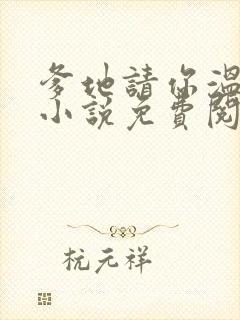 爹地請你溫
小說免費閱
杭元祥